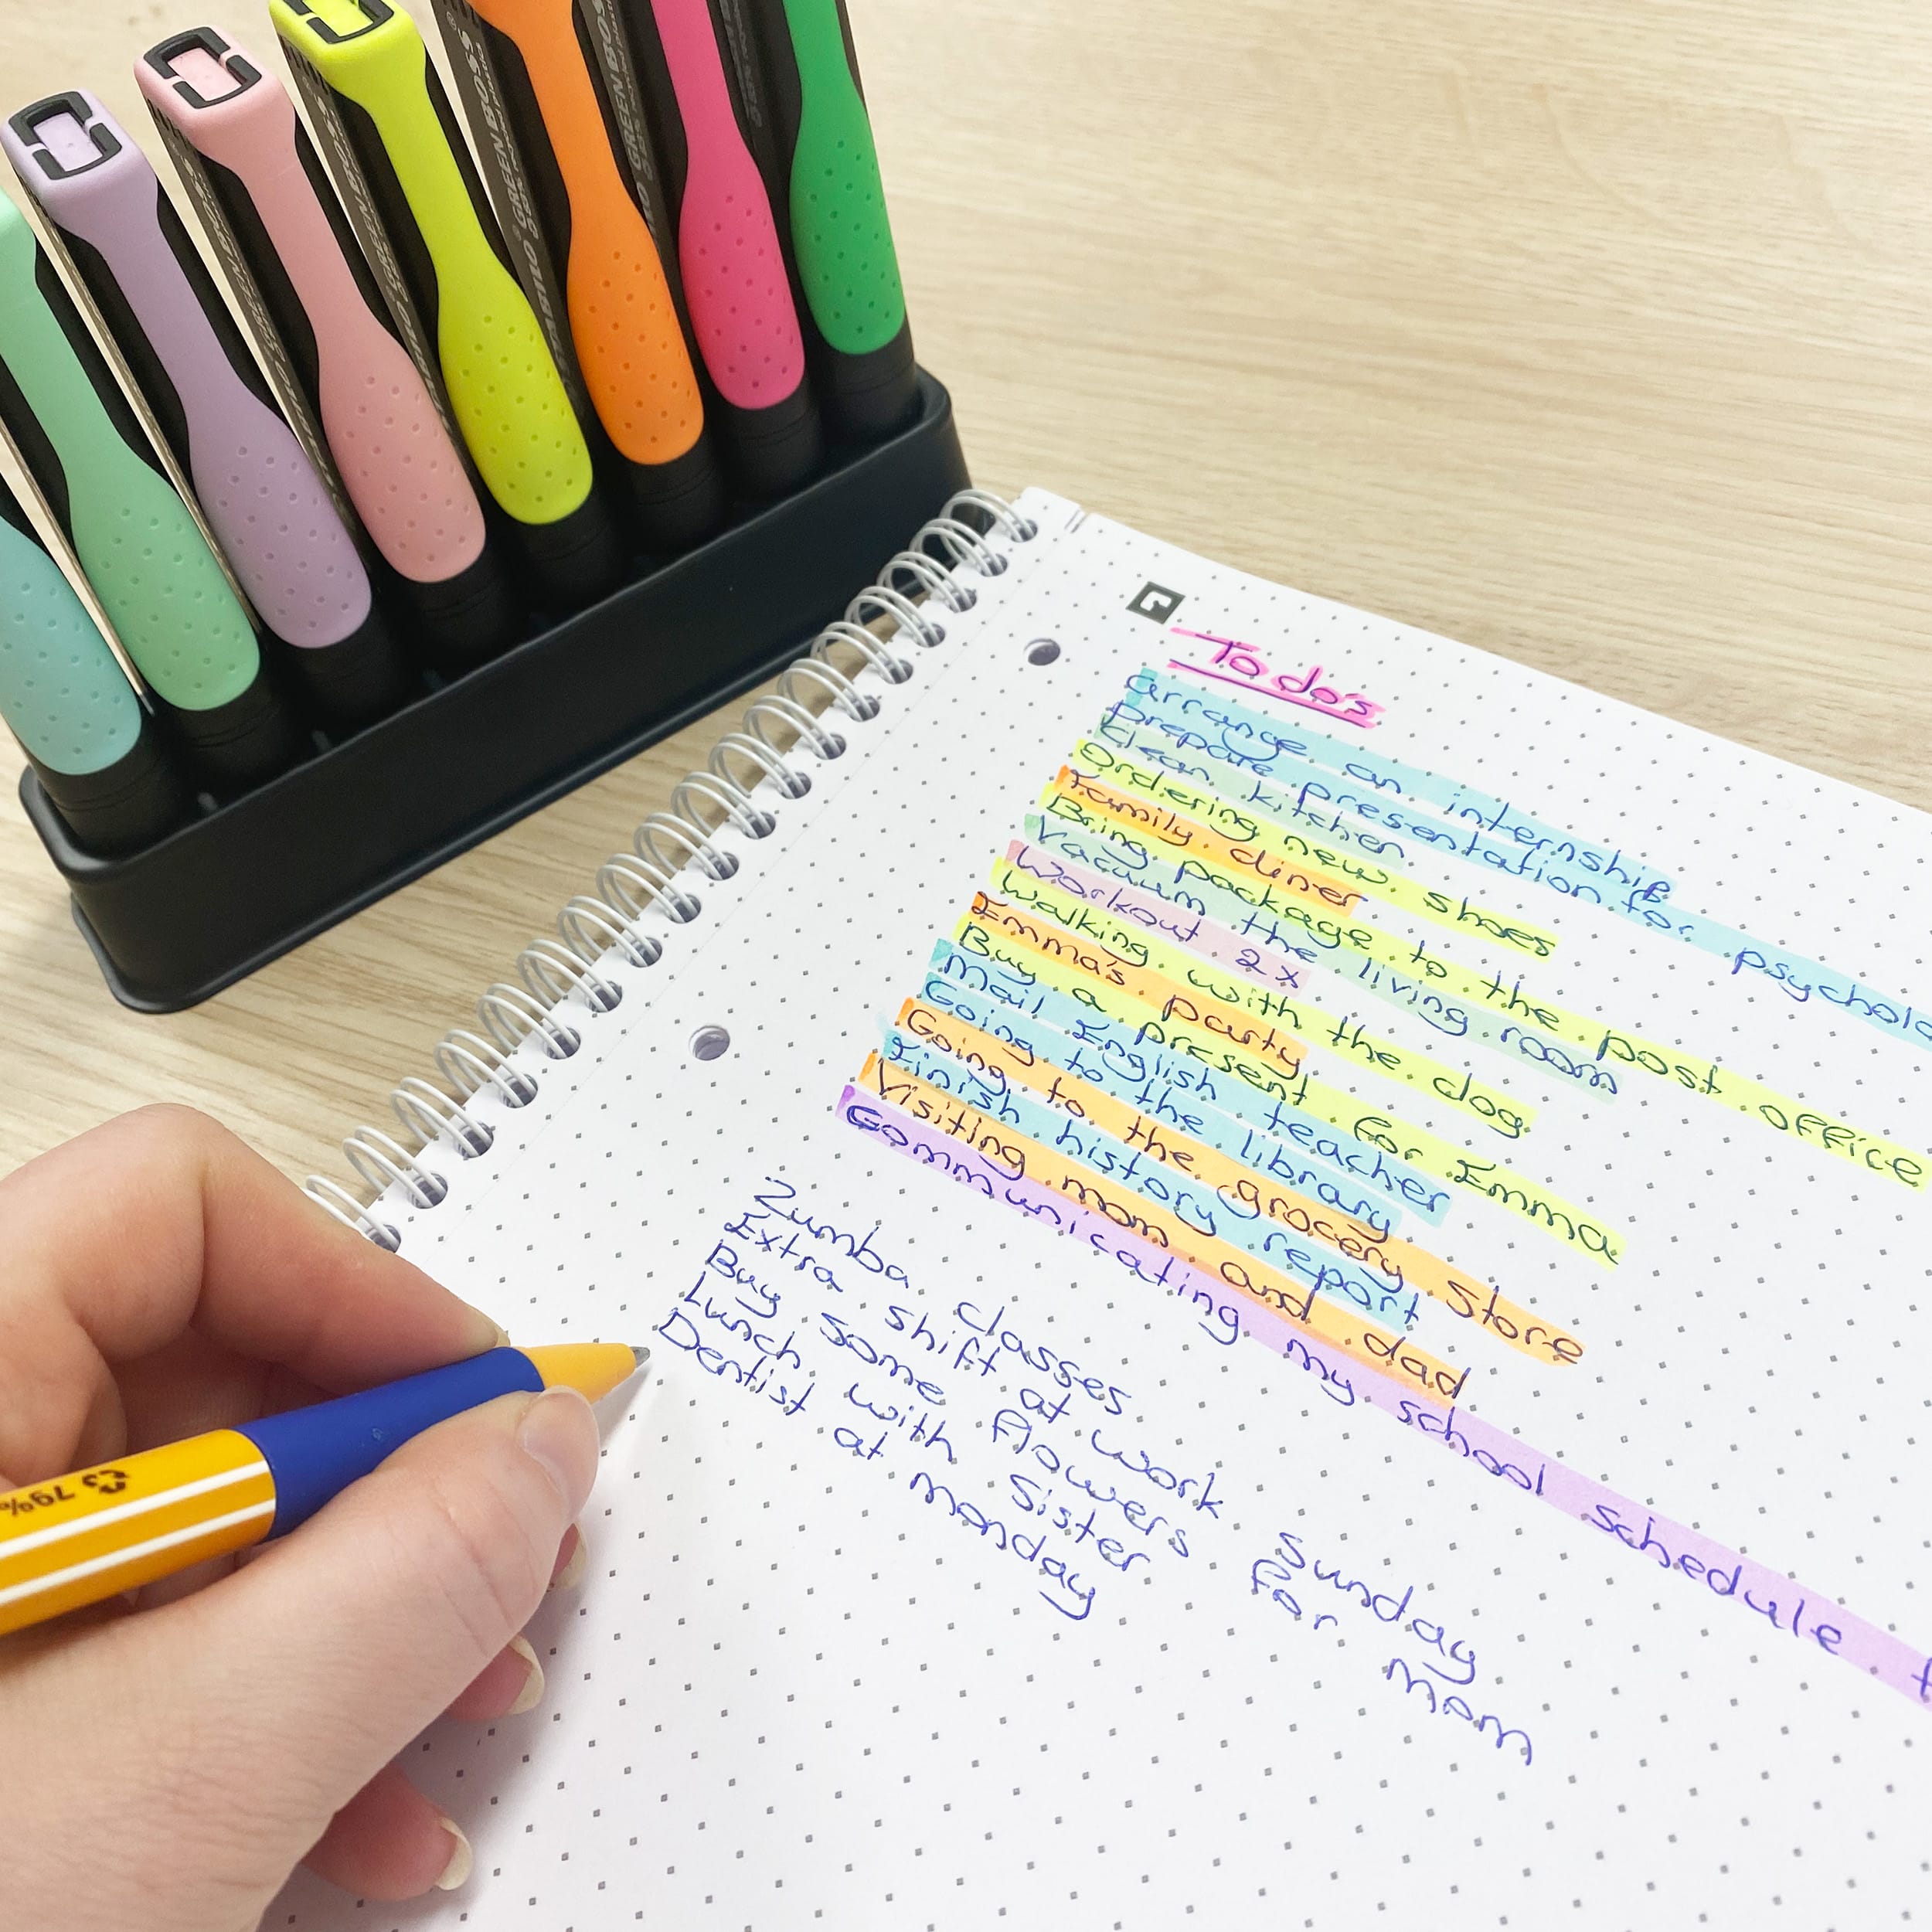 STABILO GREEN BOSS
GREEN BOSS
GREEN BOSS
79%
To do's
arrange an internship
prepare presentation for psycholo
clean kitchen
Ordering new shoes
Family diner
Bring package to the post office
Vacuum the living room
Workout 2x
Walking with the dog
Emma's party
Buy a present for Emma
Mail English teacher
Going to the library
Going to the grocery store
Finish history report
Visiting mom and dad
Communicating my school schedule t
Zumba classes
Extra shift at work Sunday
Buy some flowers for mom
Lunch with Sister
Dentist at monday